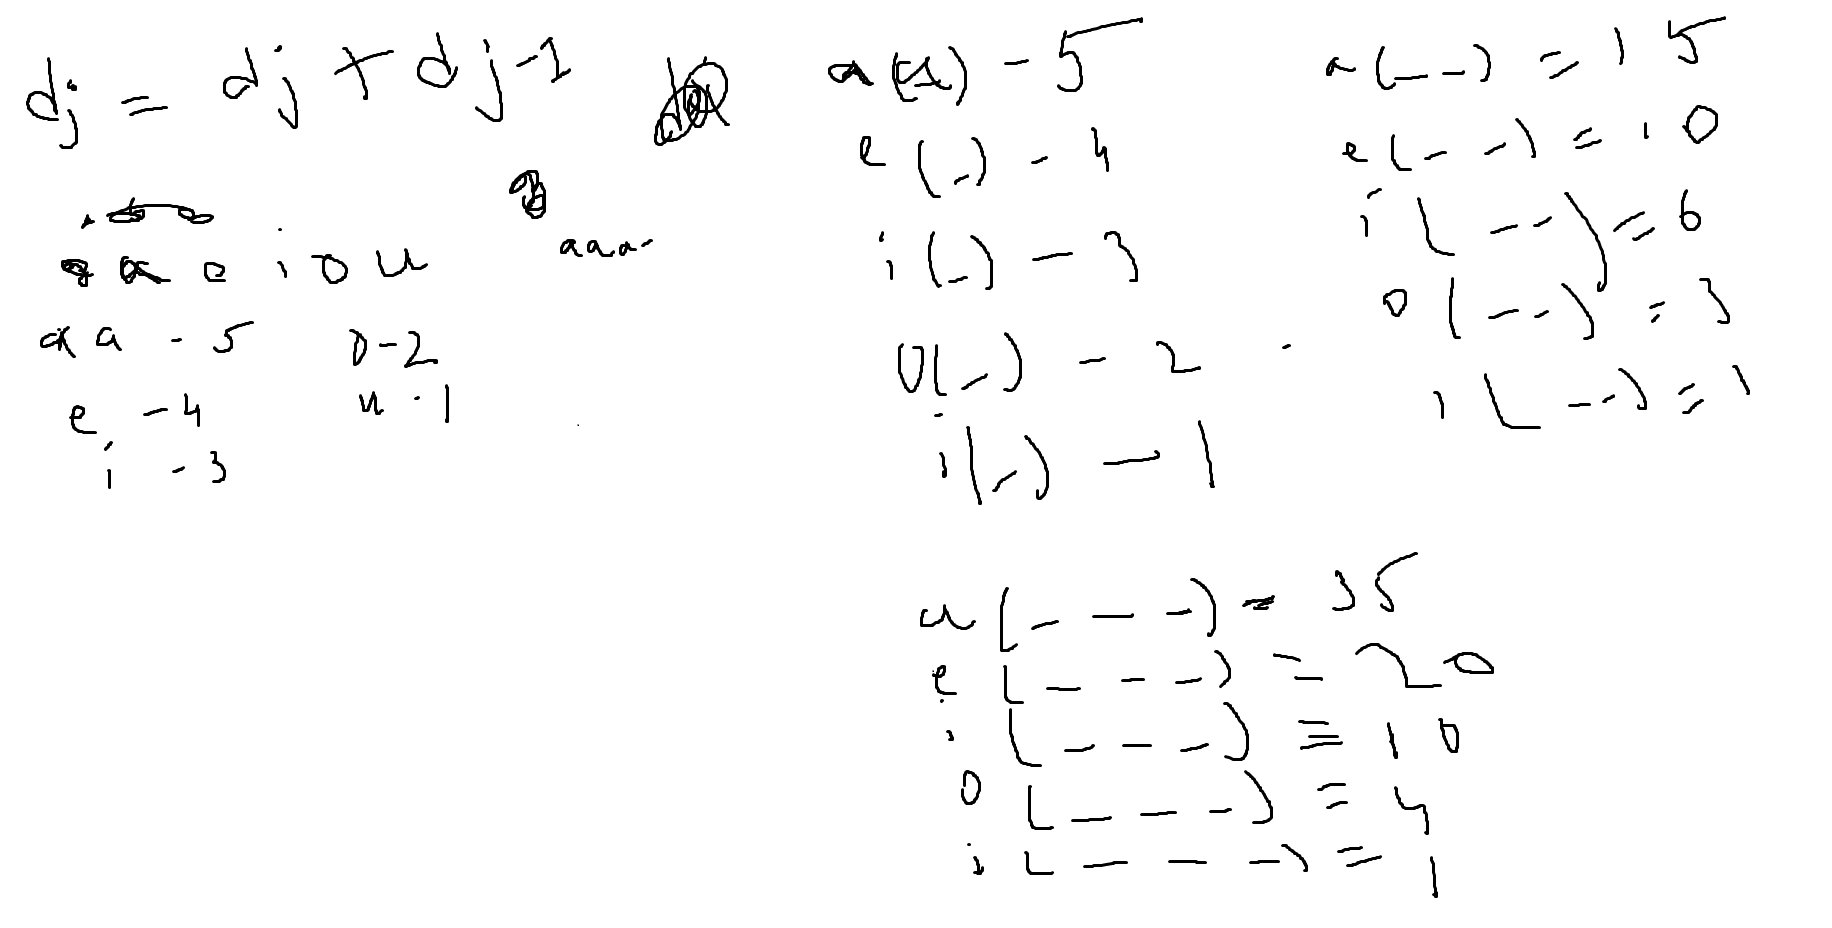 dj = dj + dj-1
a e i o u
aaa-
a - 5
o - 2
e - 4
u - 1
i - 3
a(_) - 5
e(_) - 4
i(_) - 3
o(_) - 2
i(_) - 1
a(_ _) = 15
e(_ _) = 10
i(_ _) = 6
o(_ _) = 3
i(_ _) = 1
a(_ _ _) = 35
e(_ _ _) = 20
i(_ _ _) = 10
o(_ _ _) = 4
i(_ _ _) = 1